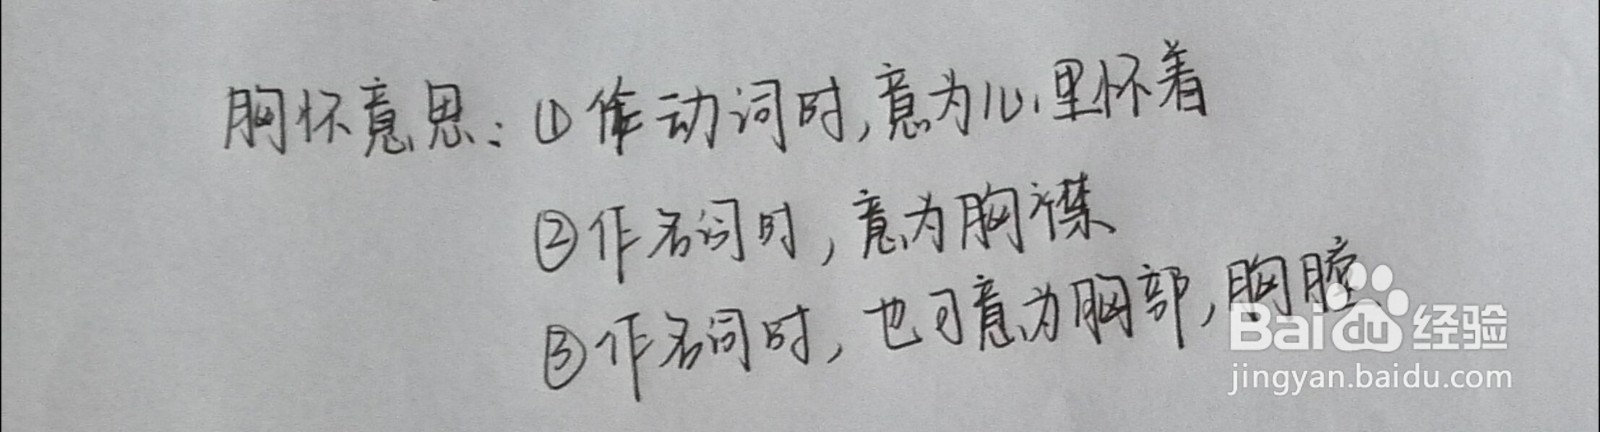 胸怀意思：①作动词时，意为心里怀着
②作名词时，意为胸襟
③作名词时，也可意为胸部，胸膛
Baidu经验
jingyan.baidu.com